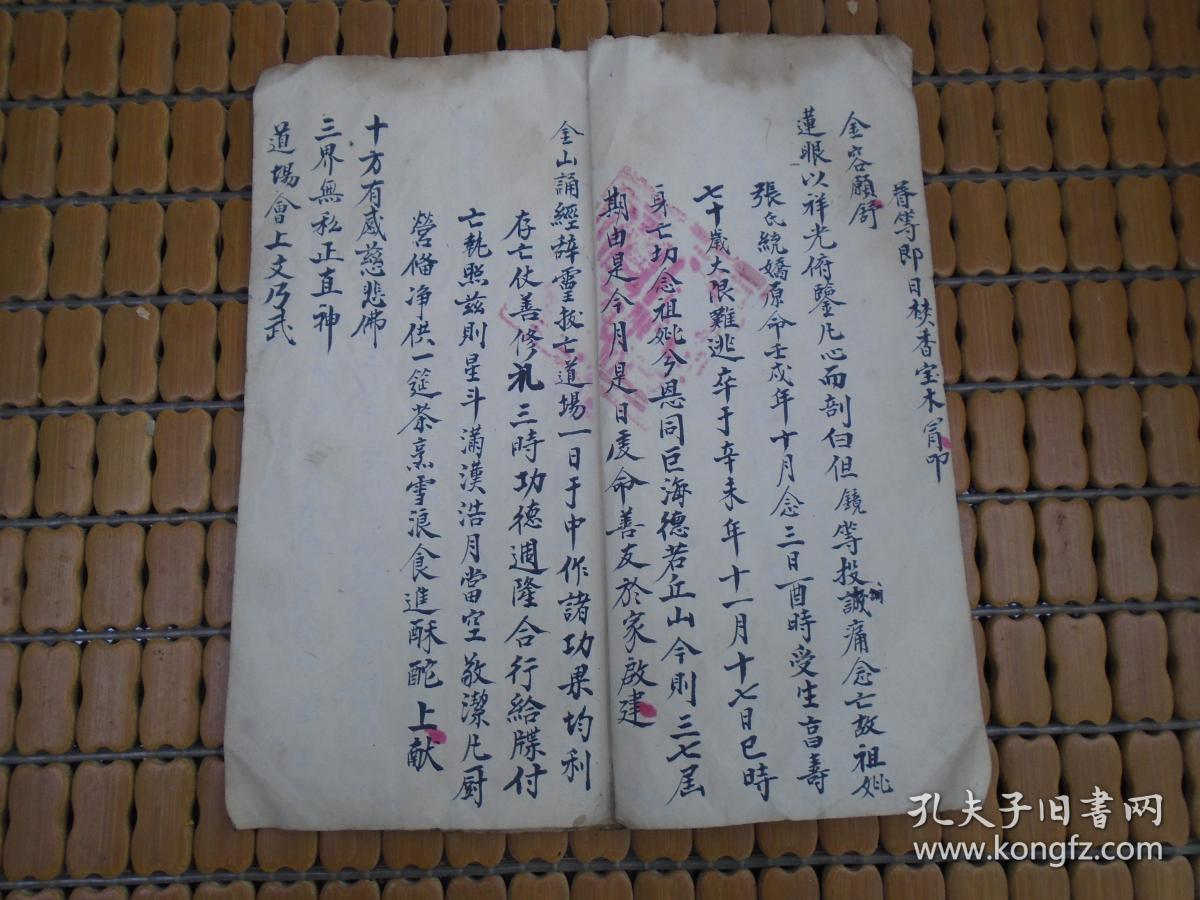 眷等即日焚香宝木冐叩
金容願舒
蓮眼以祥光俯鑒凡心而剖白但鏡等投誠痛念亡故祖妣
張氏統嬌原命壬戍年十月念三日酉時受生亯壽
七十歲大限難逃卒于辛未年十一月十七日巳時
身亡切念祖妣兮恩同巨海德若丘山今則三七届
期由是今月是日虔命善友於家啟建
金山誦經辞靈拔亡道場一日于中作諸功果均利
存亡仗善修礼三時功德週隆合行給牒付
亡執照兹則星斗滿漢浩月當空敬潔凡厨
營俻净供一筵茶烹雪浪食進酥酡上献
十方有感慈悲佛
三界無私正直神
道場會上文乃武
孔夫子旧書网
www.kongfz.com